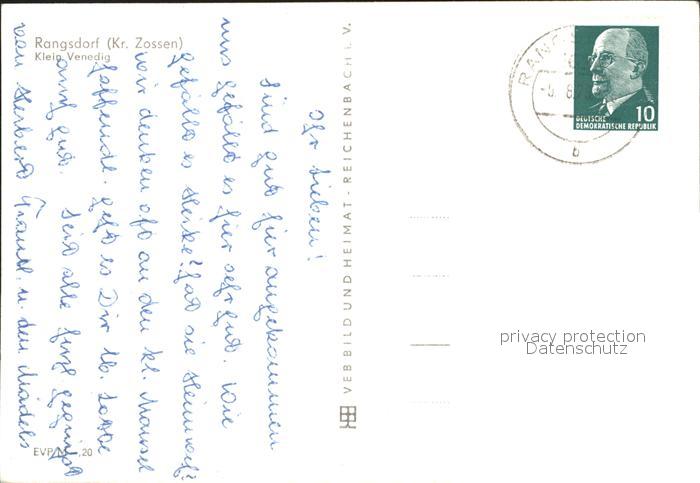 Rangsdorf (Kr. Zossen)
Klein Venedig
Ihr Lieben!
Sind gut hier angekommen
uns gefällt es hier sehr gut. Wie
gefällt es Heike? hat sie Heimweh?
wir denken oft an den kl. Mausel
hoffendl. geht es Dir lb. Lotte
auch gut. Seid alle herzl gegrüßt
von Herbert Traudl. u. den Mädels
EVP M -,20
VEB BILD UND HEIMAT - REICHENBACH i. V.
RANG
b
10
DEUTSCHE
DEMOKRATISCHE REPUBLIK
privacy protection
Datenschutz